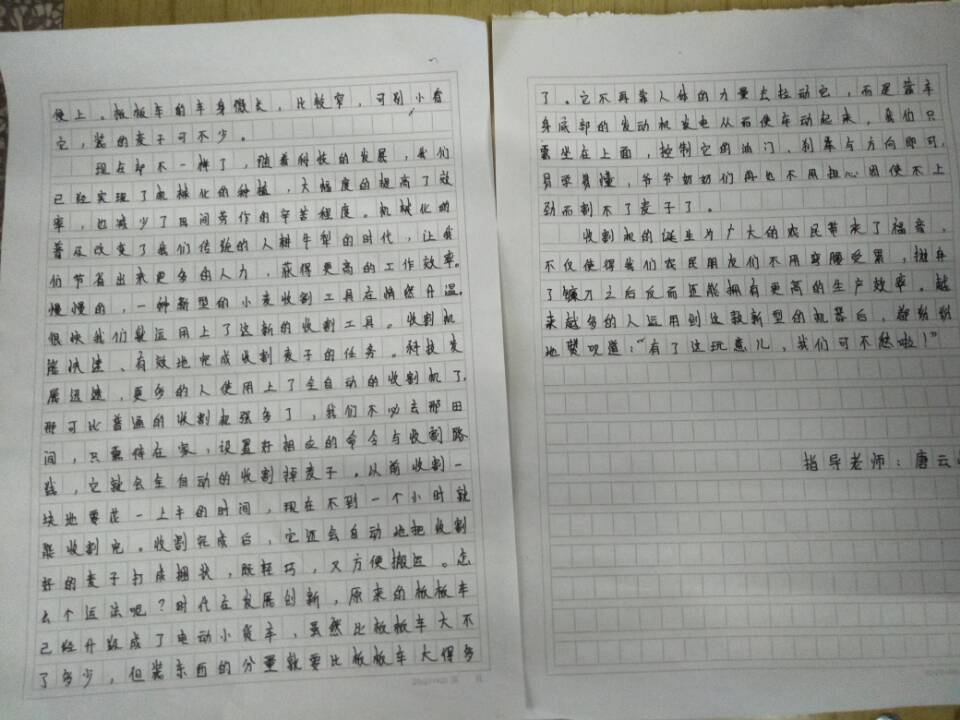 便上。板板车的车身微长，比较窄，可别小看
它，装的麦子可不少。
现在却不一样了，随着科技的发展，我们
已经实现了机械化的种植，大幅度的提高了效
率，也减少了田间劳作的辛苦程度。机械化的
普及改变了我们传统的人耕牛犁的时代，让我
们节省出来更多的人力，获得更高的工作效率。
慢慢的，一种新型的小麦收割工具在悄然升温。
很快我们就运用上了这新的收割工具。收割机
能快速、有效地完成收割麦子的任务。科技发
展迅速，更多的人使用上了全自动的收割机了，
那可比普通的收割机强多了，我们不必去那田
间，只需待在家，设置好相应的命令与收割路
线，它就会全自动的收割掉麦子。从前收割一
块地要花一上午的时间，现在不到一个小时就
能收割完。收割完成后，它还会自动地把收割
好的麦子打成捆状，既轻巧，又方便搬运。怎
么个运法呢？时代在发展创新，原来的板板车
已经升级成了电动小货车，虽然比板板车大不
了多少，但装东西的分量就要比板板车大得多
了。它不再靠人体的力量去拉动它，而是靠车
身底部的发动机发电从而使车动起来，我们只
需坐在上面，控制它的油门、刹車与方向即可，
易学易懂，爷爷奶奶们再也不用担心因使不上
劲而割不了麦子了。
收割机的诞生为广大的农民带来了福音，
不仅使得我们农民朋友们不用弯腰受累，抛弃
了镰刀之后反而还能拥有更高的生产效率。越
来越多的人运用到这款新型的机器后，都纷纷
地赞叹道：“有了这玩意儿，我们可不愁啦！”
指导老师：唐云